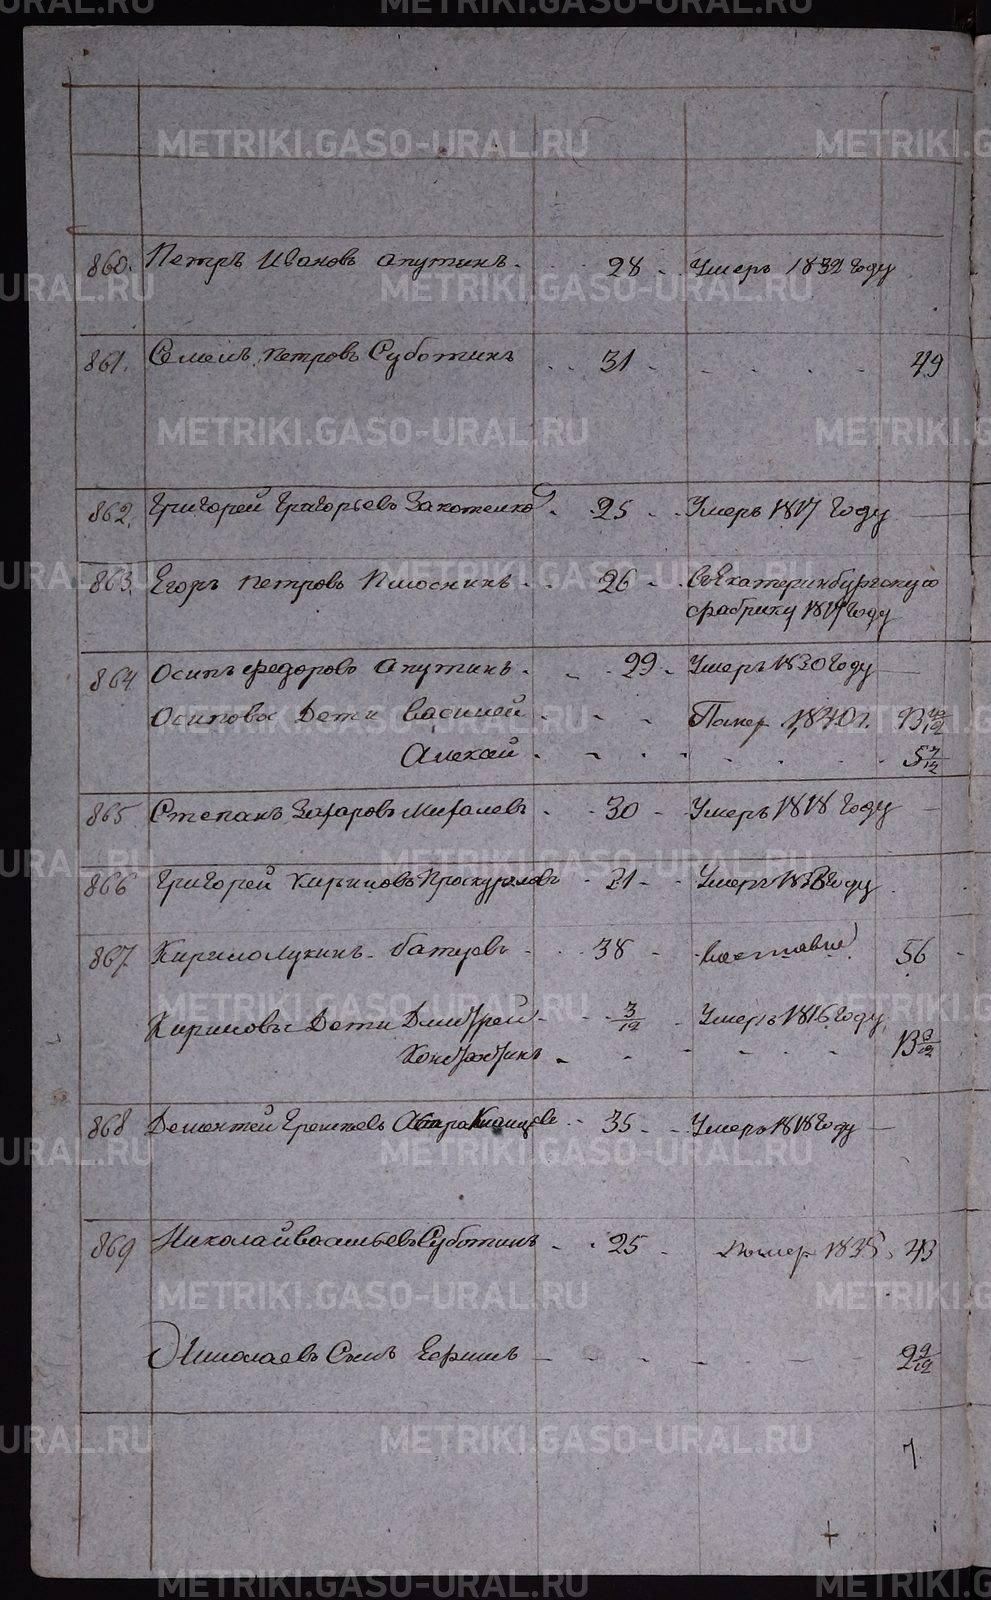 860. Петръ Ивановъ Апутинъ. 28 Умеръ 1832 Году
861. Семенъ Петровъ Суботинъ 31 49
862. Григорей Григорьевъ 25 Умеръ 1817 Году
863. Егоръ Петровъ 26 Въ Екатеринбургскую
фабрику 1817 Году
864 Осипъ Федоровъ Апутинъ 29 Умеръ 1830 Году
Осиповы Дети Василей Помер 1840 г. 13
Алексей 5 7/12
865 Степанъ Захаровъ Михалевъ 30 Умеръ 1818 Году
866 Григорей Кириловъ Проскуряковъ 21 Умеръ Году
867 Кирило Лукинъ 38 56
Кириловы Дети Дмитрей 3/12 Умеръ 1816 Году
Константинъ 13 3/12
868 Дементей 35 Умеръ 1818 Году
869 Николай Васильевъ Суботинъ 25 Помер 43
Николаевъ Сынъ 2 9/12
7.
METRIKI.GASO-URAL.RU